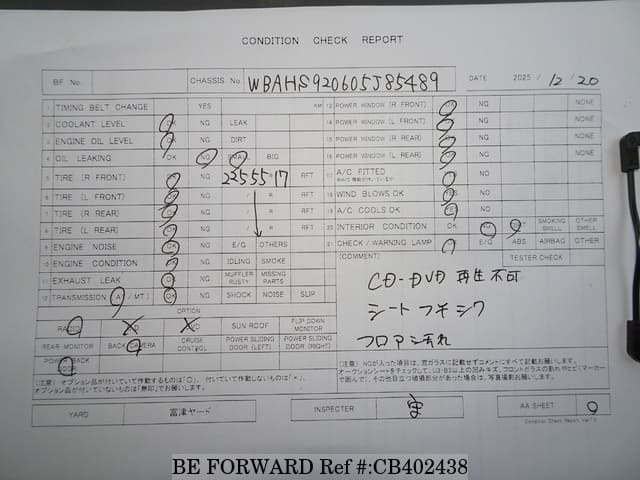 CONDITION CHECK REPORT
BF No. CHASSIS No WBAHS920605J85489 DATE 2025 / 12 / 20
1 TIMING BELT CHANGE YES KM
2 COOLANT LEVEL OK NG LEAK
3 ENGINE OIL LEVEL OK NG DIRT
4 OIL LEAKING OK NG SMALL BIG
5 TIRE (R FRONT) OK NG 225 55 17 RFT
6 TIRE (L FRONT) OK NG / R RFT
7 TIRE (R REAR) OK NG / R RFT
8 TIRE (L REAR) OK NG / R RFT
9 ENGINE NOISE OK NG E/G OTHERS
10 ENGINE CONDITION OK NG IDLING SMOKE
11 EXHAUST LEAK OK NG MUFFLER RUSTY MISSING PARTS
12 TRANSMISSION (A / MT) OK NG SHOCK NOISE SLIP
OPTION
RADIO SUN ROOF FLIP DOWN MONITOR
REAR MONITOR BACK CAMERA CRUISE CONTROL POWER SLIDING DOOR (LEFT) POWER SLIDING DOOR (RIGHT)
POWER BACK DOOR
(注意) オプション品が付いていて作動するものは「○」、付いていて作動しないものは「×」、
オプション品が付いていないものは「無印」でお願いします。
13 POWER WINDOW (R FRONT) OK NG NONE
14 POWER WINDOW (L FRONT) OK NG NONE
15 POWER WINDOW (R REAR) OK NG NONE
16 POWER WINDOW (L REAR) OK NG NONE
17 A/C FITTED OK NO
18 WIND BLOWS OK YES NO
19 A/C COOLS OK YES NO
20 INTERIOR CONDITION OK NG DIRT SMOKING SMELL OTHER SMELL
21 CHECK / WARNING LAMP OK E/G ABS AIRBAG OTHER
(COMMENT) TESTER CHECK
CD-DVD 再生不可
シート フキ シワ
フロア 汚れ
(注意) NGが入った項目は、窓ガラスに記載せずコメントにすべて記載お願いします。
YARD 富津ヤード INSPECTER AA SHEET
Condition Check Report Ver7.0
BE FORWARD Ref #:CB402438